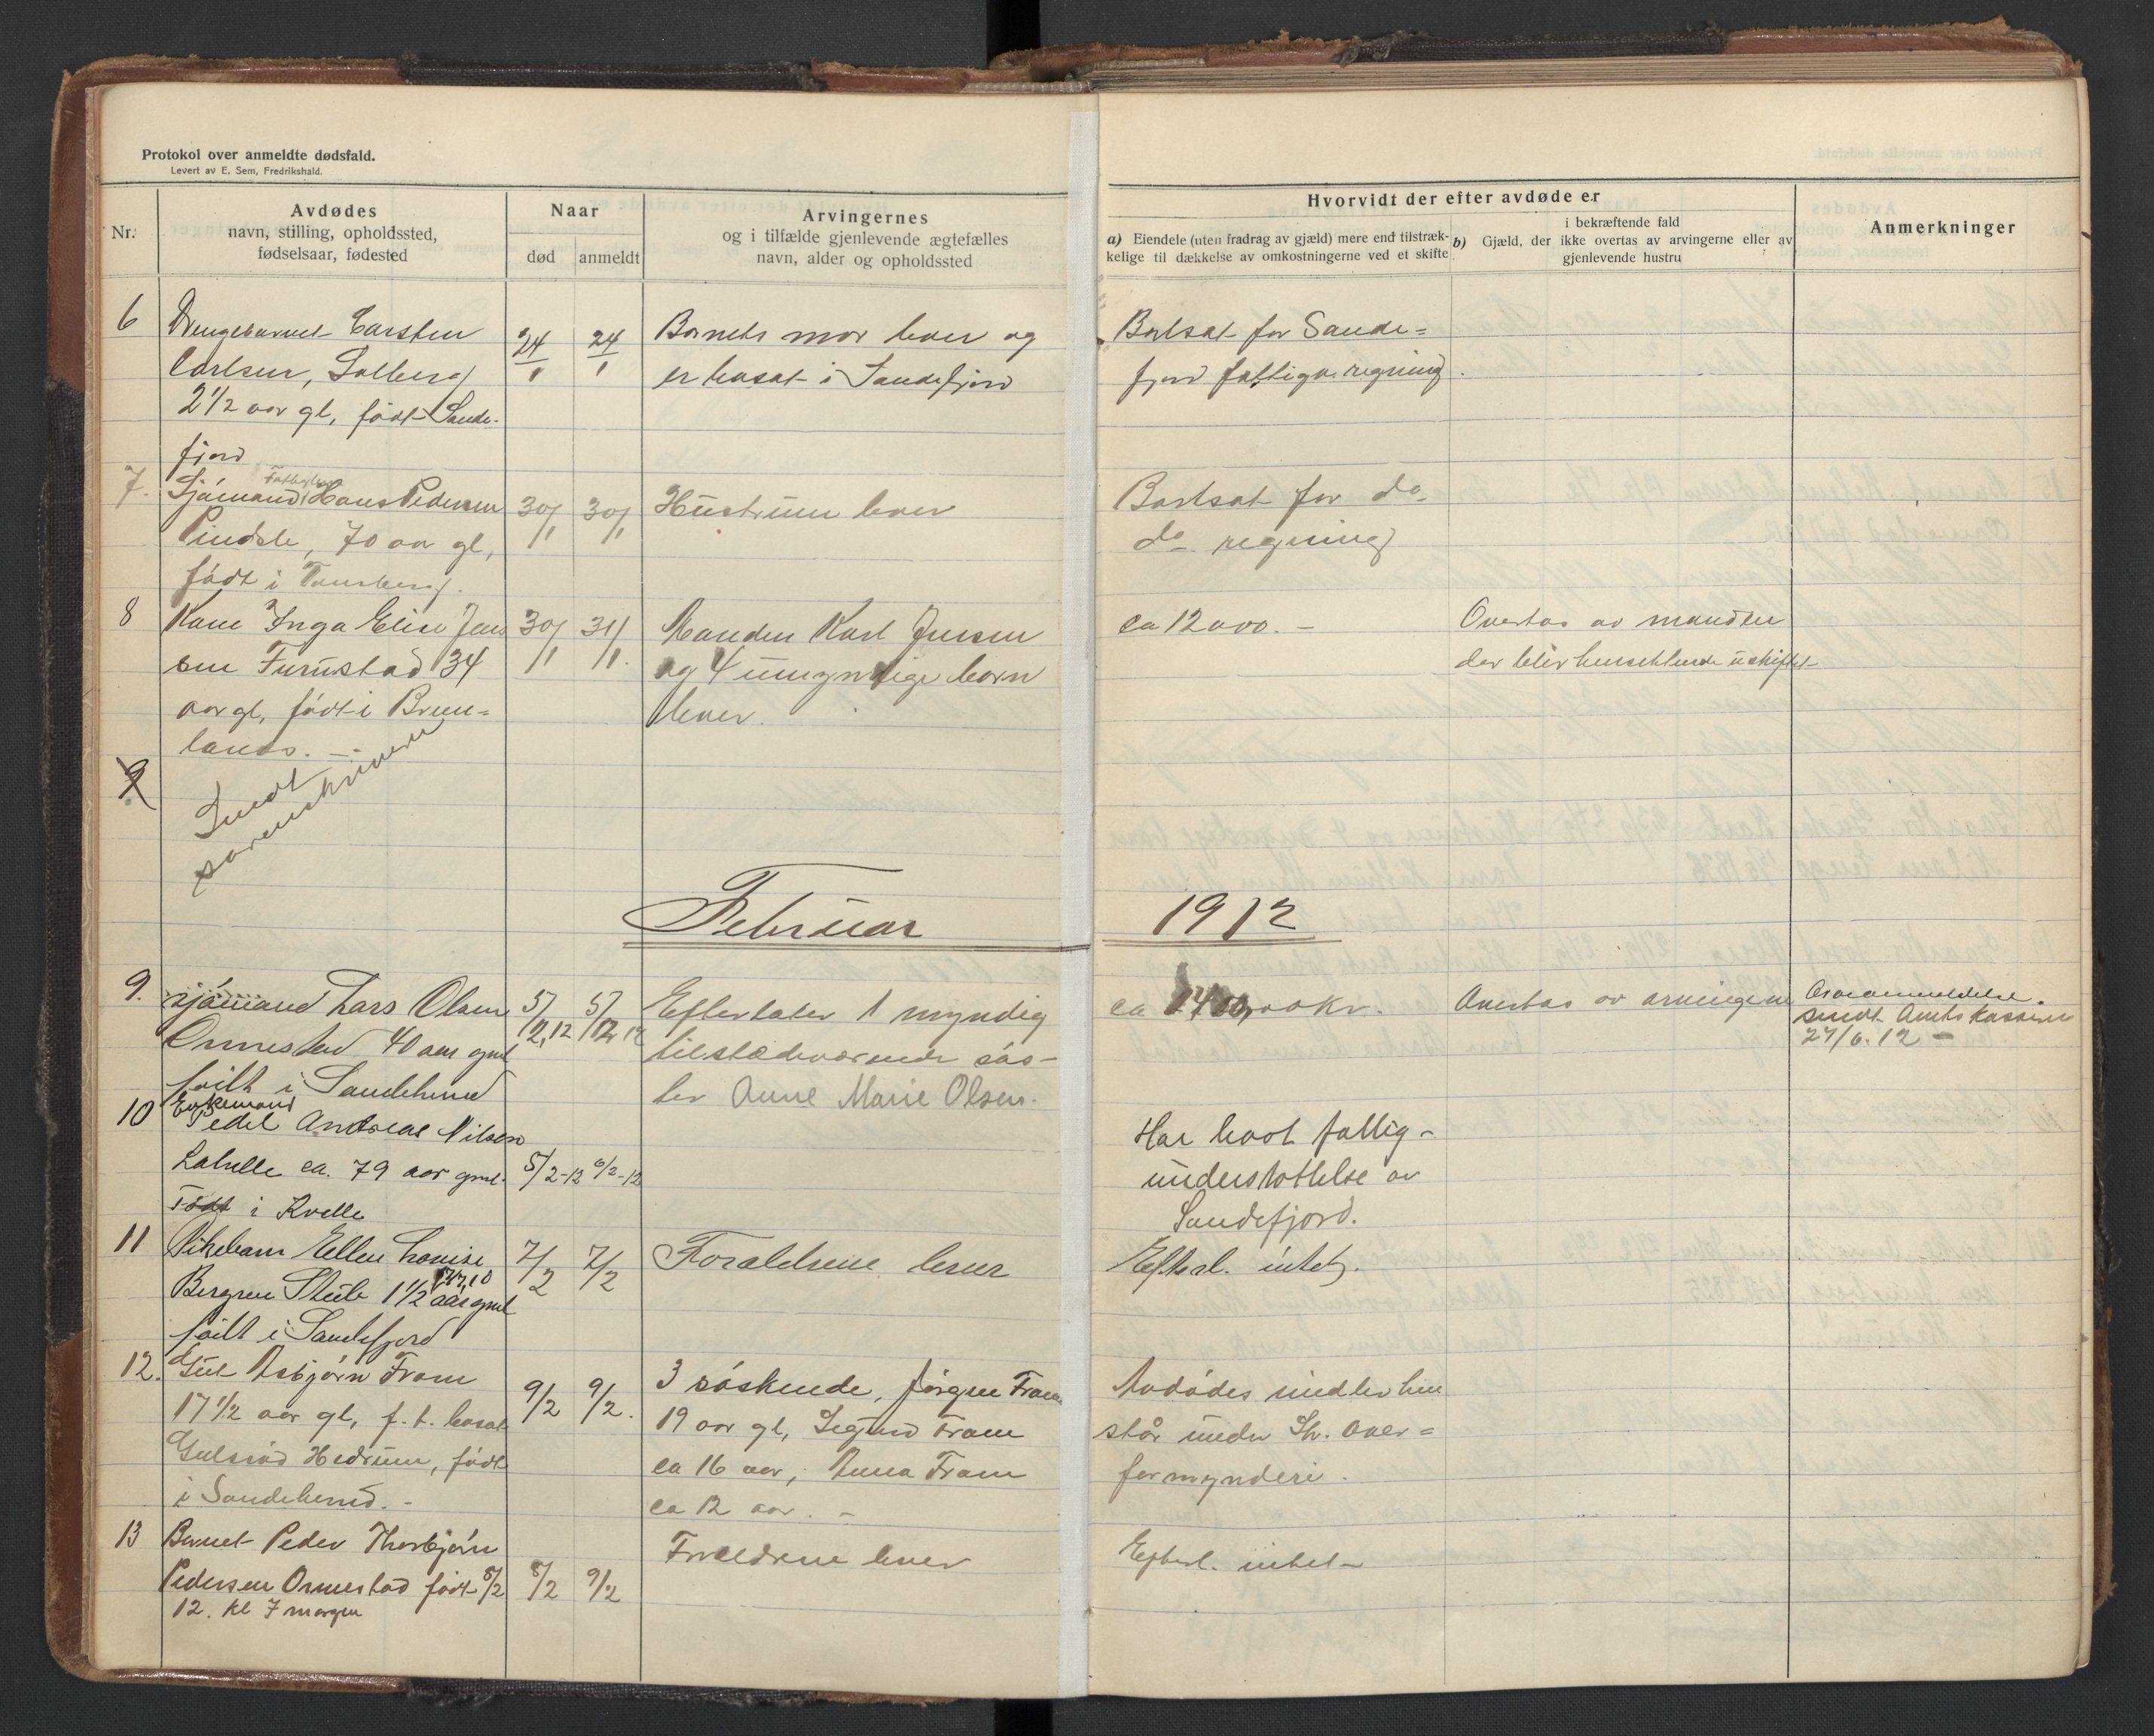 Protokol over anmeldte dødsfald.
Levert av E. Sem, Fredrikshald.
Nr.
Avdødes
navn, stilling, opholdssted,
fødselsaar, fødested
Naar
død
anmeldt
Arvingernes
og i tilfælde gjenlevende ægtefælles
navn, alder og opholdssted
Hvorvidt der efter avdøde er
a) Eiendele (uten fradrag av gjæld) mere end tilstræk-
kelige til dækkelse av omkostningerne ved et skifte
i bekræftende fald
b) Gjæld, der ikke overtas av arvingerne eller av
gjenlevende hustru
Anmerkninger
6
Drengebarnet Carsten
Carlsen, Solberg
2 1/2 aar gl, født Sande-
fjord
24/1
24/1
Barnets mor lever og
er bosat i Sandefjord
Bortsat for Sande=
fjord fattigv. regning.
7.
Sjømand Hans Pedersen
Pindsle, 70 aar gl,
født i Tønsberg.
30/1
30/1
Hustruen lever
Bortsat for do
do regning
8
Kone Inga Elise Jen
sen Furustad 34
aar gl, født i Brun=
lanes. –
30/1
31/1.
Manden Karl Jensen
og 4 umyndige børn
lever.
ca 12000. –
Overtas av manden
der blir hensittende i uskiftet
9
Sendt
sorenskriveren
Februar
1912
9.
Sjømand Lars Olsen
Ormestad 40 aar gml
født i Sandeherred
5/2,12
5/2 12
Efterlater 1 myndig
tilstedeværende søs-
ter Anne Marie Olsen.
ca 1400,00 kr.
Overtas av arvingerne
sendt Amtskassereren
27/6.12 –
10
Enkemand
Pedel Andreas Nilsen
ca. 79 aar gml.
Født i Kvelle
5/2-12
6/2-12
Har havt fattig-
understøttelse av
Sandefjord.
11
Pikebarn Ellen Louise
Bergren 1 1/2 aar gml
født i Sandefjord
7/2
7/2
Forældrene lever
Efterl. intet.
12.
Gut Asbjørn Fram
17 1/2 aar gl, f. t. bosat
Gulsrød Hedrum, født
i Sandeherred. –
9/2
9/2.
3 søskende, Jørgen Fram
19 aar gl, Sigurd Fram
ca 16 aar, Anna Fram
ca 12 aar. –
Avdødes midler hen
står under Sh. over=
formynderi.
13
Barnet Peder Thorbjørn
Pedersen Ormestad født 8/2
12. kl 7 morgen
8/2
9/2
Forældrene lever
Efterl. intet –